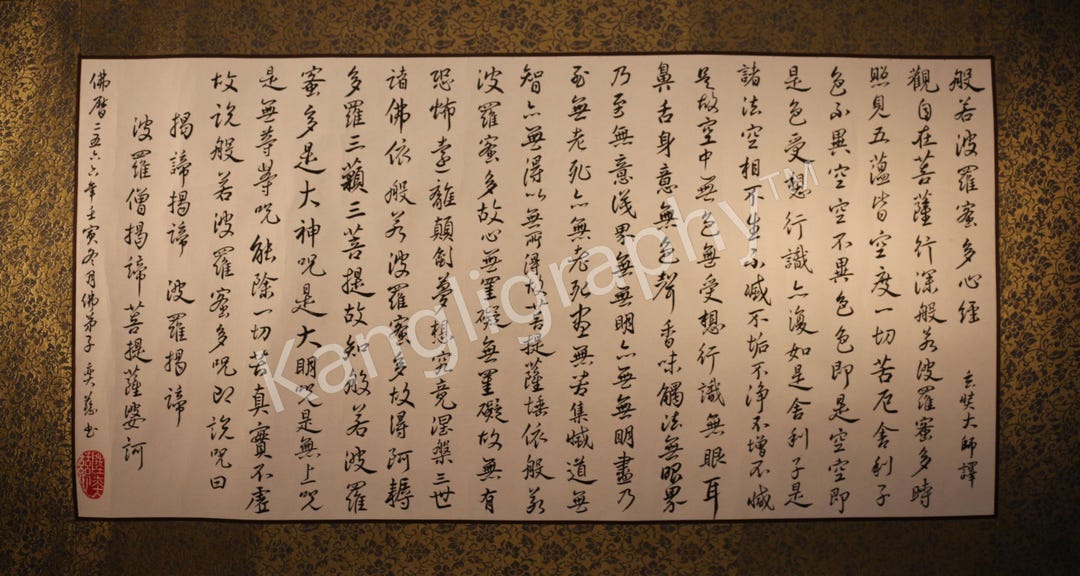 般若波羅蜜多心經 玄奘大師譯
觀自在菩薩行深般若波羅蜜多時
照見五蘊皆空度一切苦厄舍利子
色不異空空不異色色即是空空即
是色受想行識亦復如是舍利子是
諸法空相不生不滅不垢不淨不增不減
是故空中無色無受想行識無眼耳
鼻舌身意無色聲香味觸法無眼界
乃至無意識界無無明亦無無明盡乃
至無老死亦無老死盡無苦集滅道無
智亦無得以無所得故菩提薩埵依般若
波羅蜜多故心無罣礙無罣礙故無有
恐怖遠離顛倒夢想究竟涅槃三世
諸佛依般若波羅蜜多故得阿耨
多羅三藐三菩提故知般若波羅
蜜多是大神咒是大明咒是無上咒
是無等等咒能除一切苦真實不虛
故說般若波羅蜜多咒即說咒曰
揭諦揭諦 波羅揭諦
波羅僧揭諦 菩提薩婆訶
佛曆二五六六年壬寅冬月佛弟子 书
Kangligraphy™